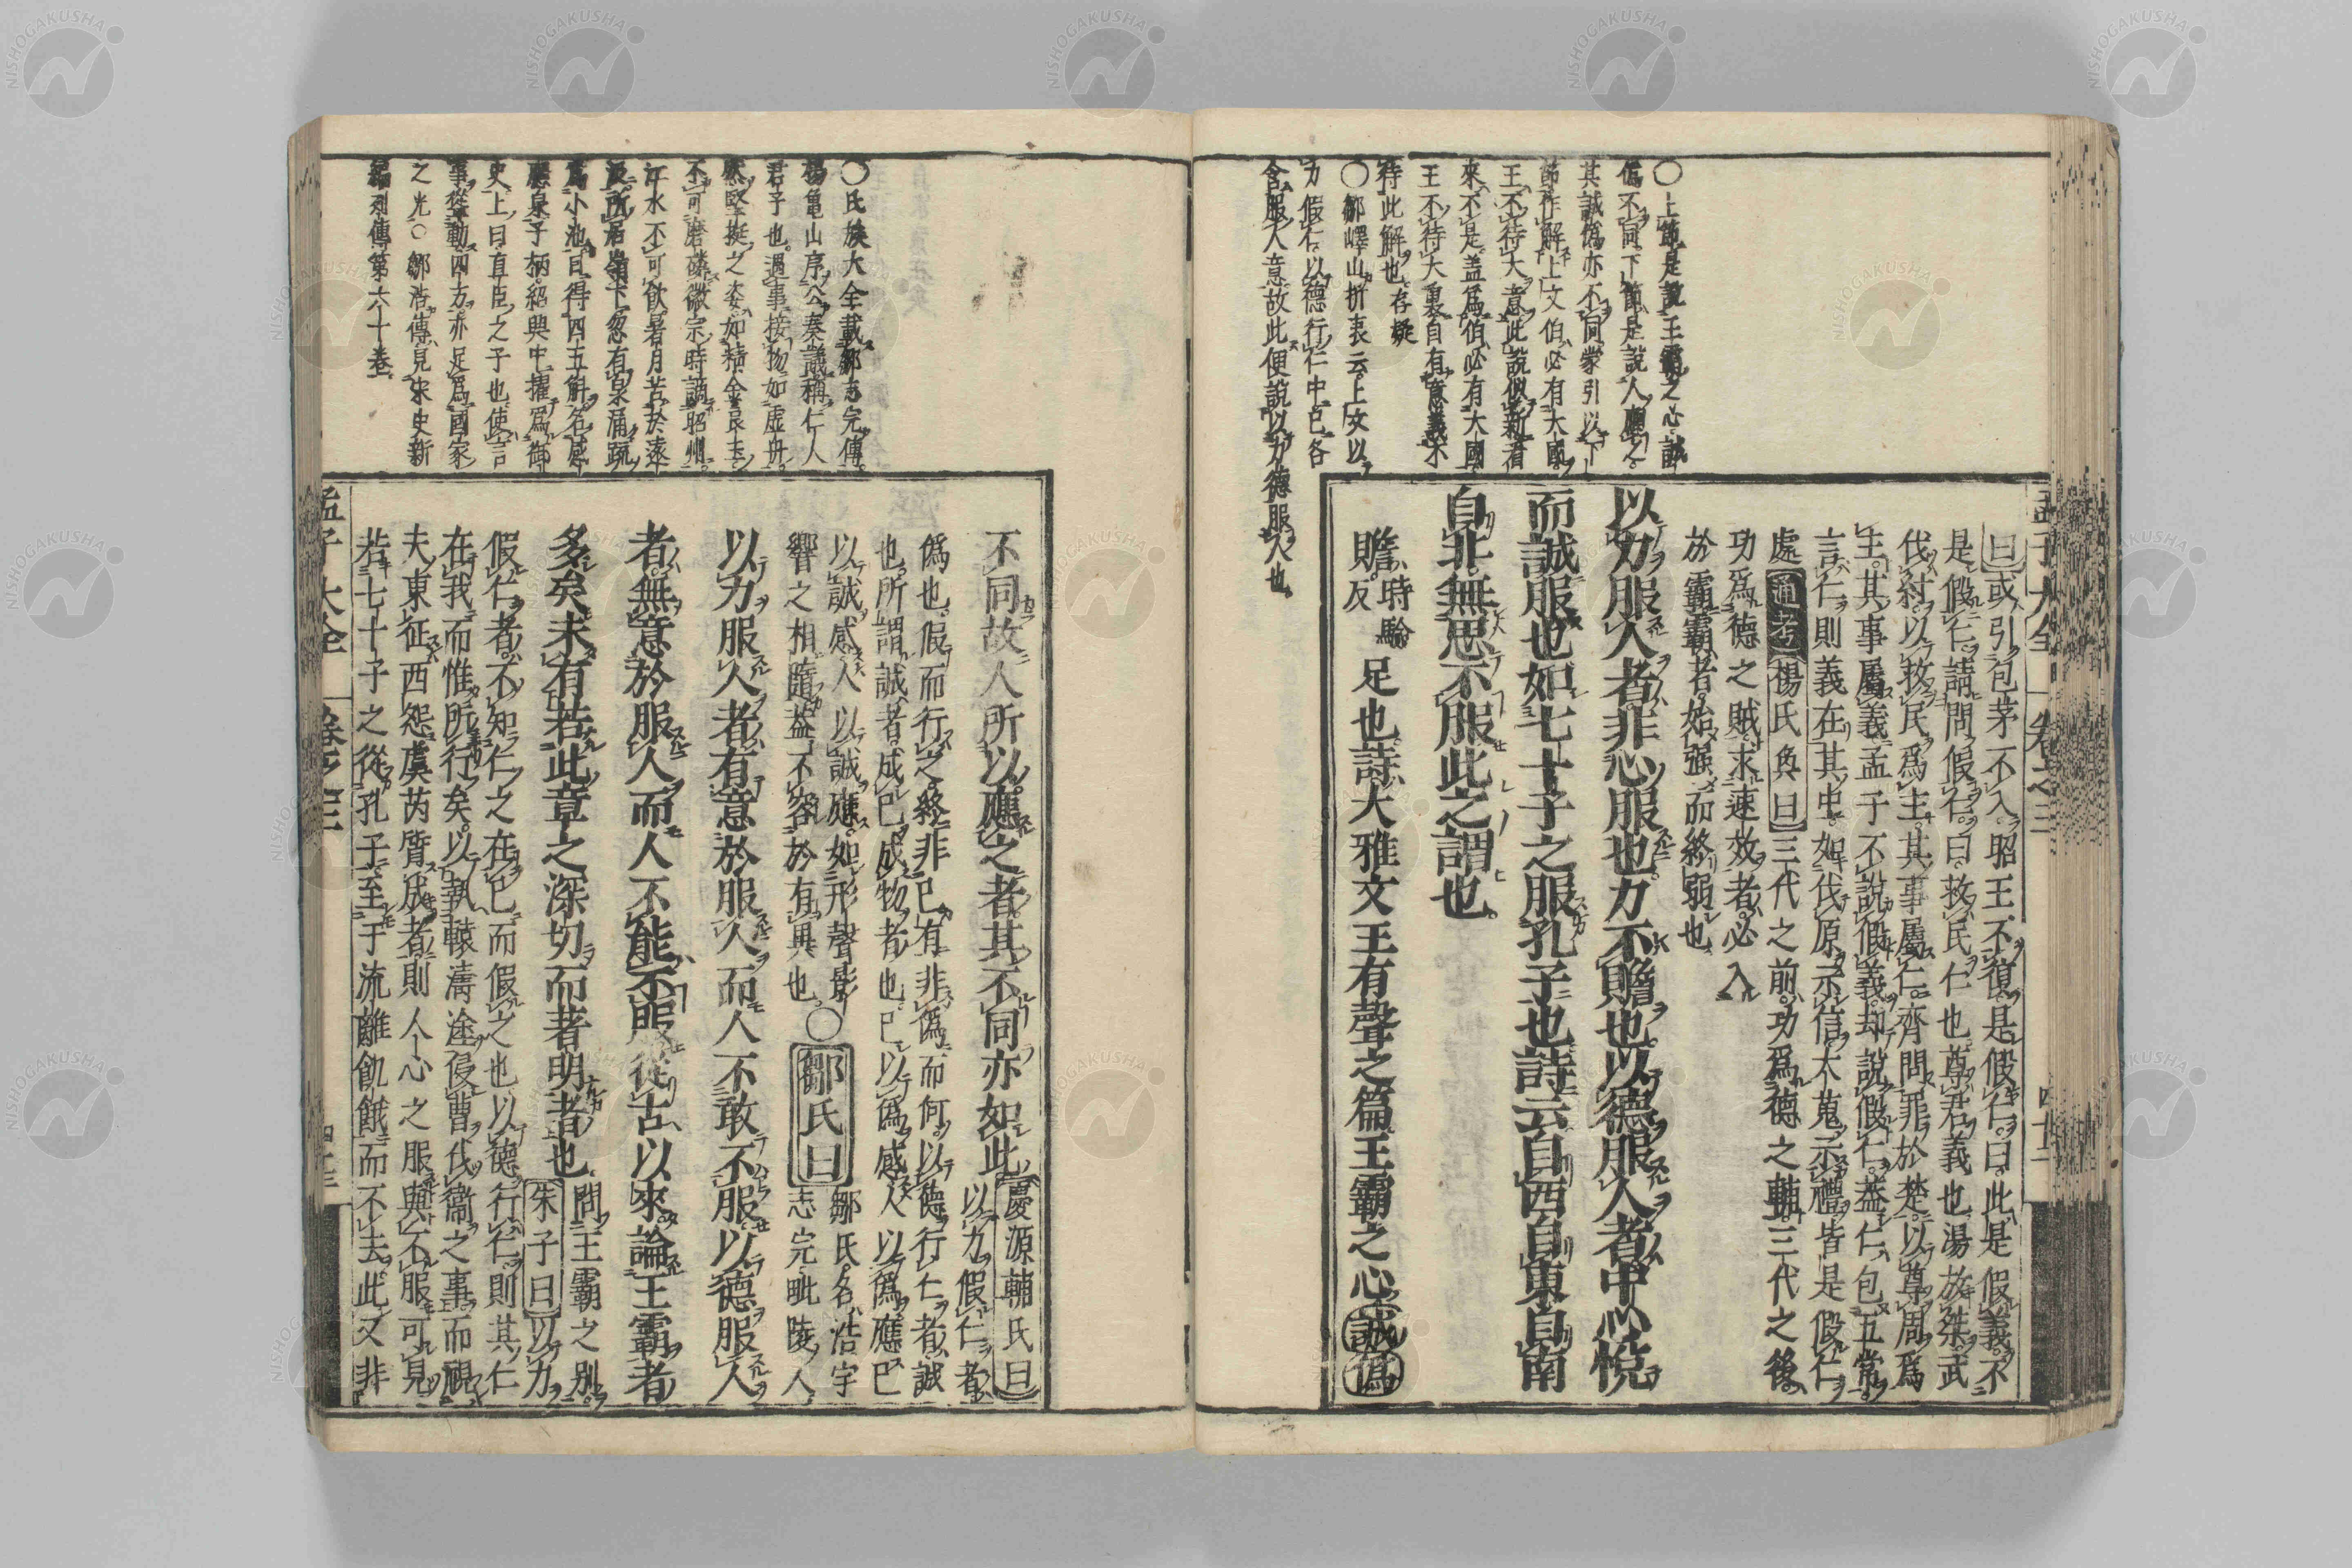 ○上節是說王霸之心誠
偽不同下節是說人應之
其誠偽亦不同蒙引以下
節作解上文伯必有大國
王不待大意此說似新看
來不是蓋爲伯必有大國
王不待大裏自有意義不
待此解也存疑
○鄒嶧山折衷云上文以
力假仁以德行仁中已各
含服人意故此便說以力德服人也
孟子大全 卷之三 四十二
曰或引包茅不入昭王不復是假仁曰此是假義不
是假仁請問假仁曰救民仁也尊君義也湯放桀武
伐紂以救民爲主其事屬仁齊問罪於楚以尊周爲
主其事屬義孟子不說假義却說假仁蓋仁包五常
言仁則義在其中如伐原示信大蒐示禮皆是假仁
處通考楊氏奐曰三代之前功爲德之輔三代之後
功爲德之賊求速效者必入
於霸霸者始强而終弱也
以力服人者非心服也力不贍也以德服人者中心悅
而誠服也如七十子之服孔子也詩云自西自東自南
自北無思不服此之謂也
贍時驗反足也詩大雅文王有聲之篇王霸之心誠偽
○氏族大全載鄒志完傳
楊龜山序公奏議稱仁人
君子也遇事接物如虛舟
然堅挺之姿如精金良玉
不可磨磷徽宗時謫昭州
江水不可飲暑月苦於遠
汲所居嶺下忽有泉涌疏
爲小池日得四五斛名感
應泉子柄紹興中擢爲御
史上曰直臣之子也使言
事從動四方亦足爲國家
之光○鄒浩傳見宋史新
編列傳第六十卷
不同故人所以應之者其不同亦如此慶源輔氏曰以力假仁者
偽也假而行之終非已有非偽而何以德行仁者誠
也所謂誠者成已成物者也已以偽感人以偽應已
以誠感人以誠應如形聲影
響之相隨蓋不容於有異也○鄒氏曰鄒氏名浩字
志完毗陵人
以力服人者有意於服人而人不敢不服以德服人
者無意於服人而人不能不服從古以來論王霸者
多矣未有若此章之深切而著明者也問王霸之別
朱子曰以力
假仁者不知仁之在已而假之也以德行仁則其仁
在我而惟所行矣以執轅濤塗侵曹伐衞之事而視
夫東征西怨虞芮質成者則人心之服與不服可見
若七十子之從孔子至于流離飢餓而不去此又非
孟子大全 卷之三 四十三
NISHOGAKUSHA